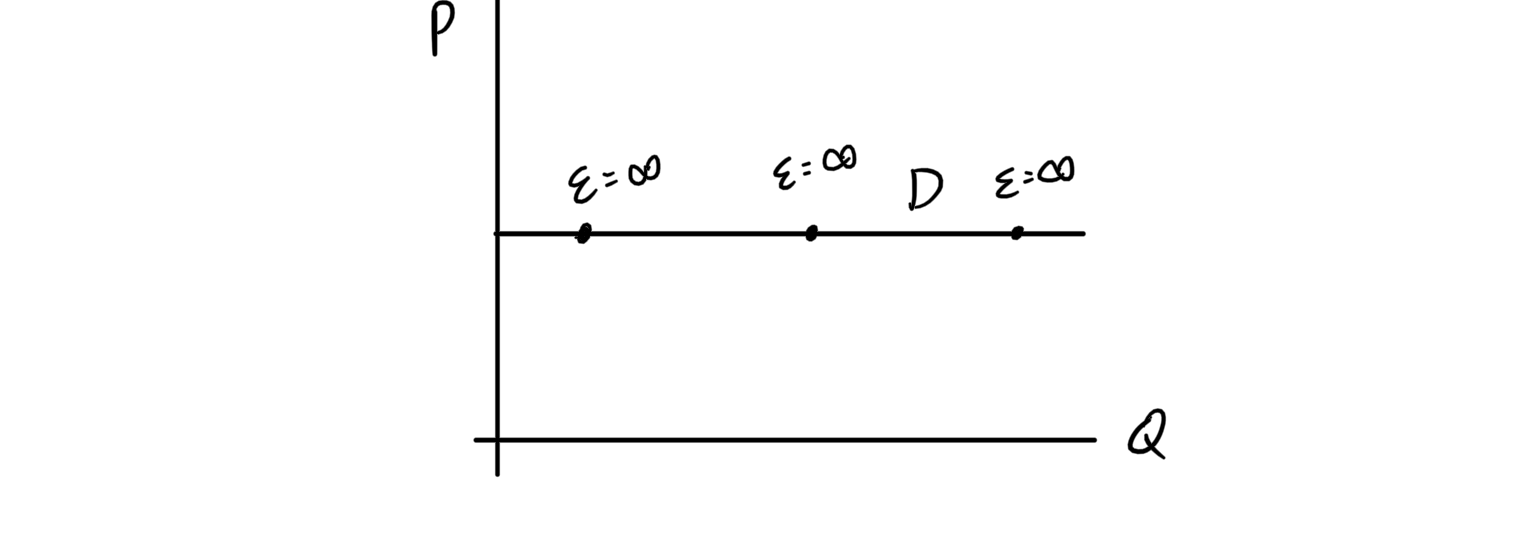 P
ε=∞
ε=∞
D
ε=∞
Q